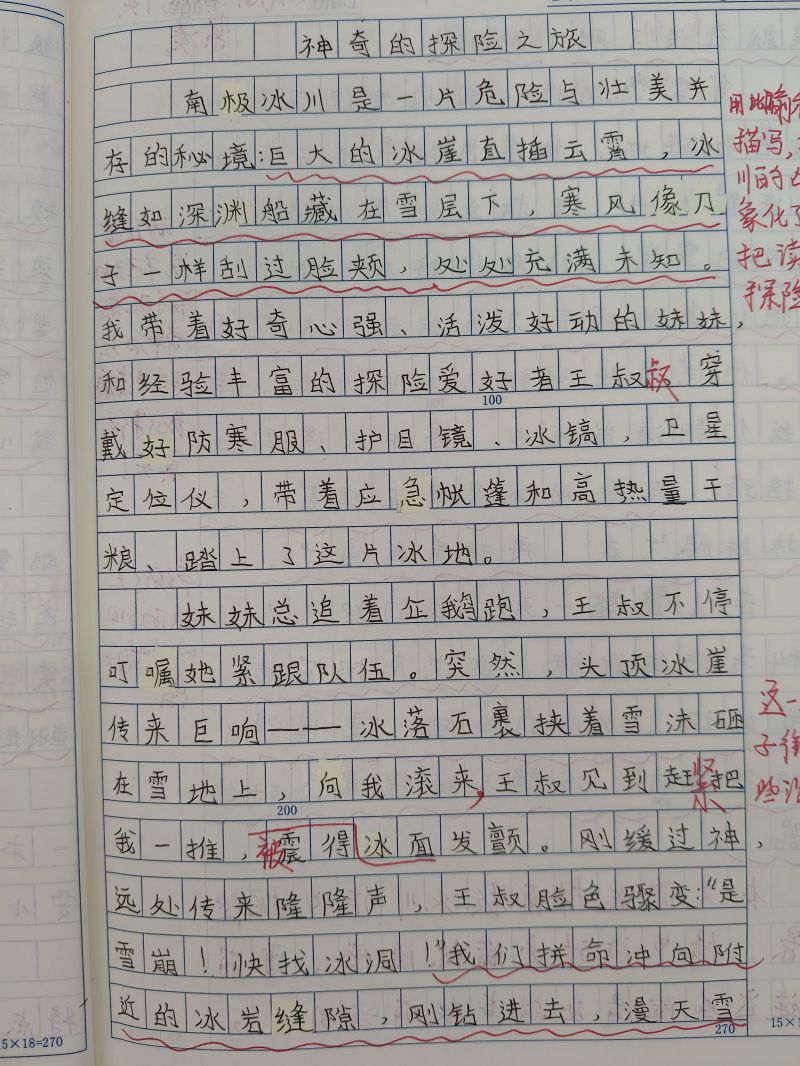 神奇的探险之旅
南极冰川是一片危险与壮美并
存的秘境:巨大的冰崖直插云霄，冰
缝如深渊船藏在雪层下，寒风像刀
子一样刮过脸颊，处处充满未知。
我带着好奇心强、活泼好动的妹妹，
和经验丰富的探险爱好者王叔叔。穿
戴好防寒服、护目镜、冰镐，卫星
定位仪，带着应急帐篷和高热量干
粮、踏上了这片冰地。
妹妹总追着企鹅跑，王叔不停
叮嘱她紧跟队伍。突然，头顶冰崖
传来巨响——冰落石裹挟着雪沫砸
在雪地上，向我滚来，王叔见到赶紧把
我一推，被震得冰面发颤。刚缓过神，
远处传来隆隆声，王叔脸色骤变:“是
雪崩！快找冰洞！”我们拼命冲向附
近的冰岩缝隙，刚钻进去，漫天雪
100
200
270
15×18=270
15×1
用比喻
描写，
川的
象化了
把读
探险
这一
子
些